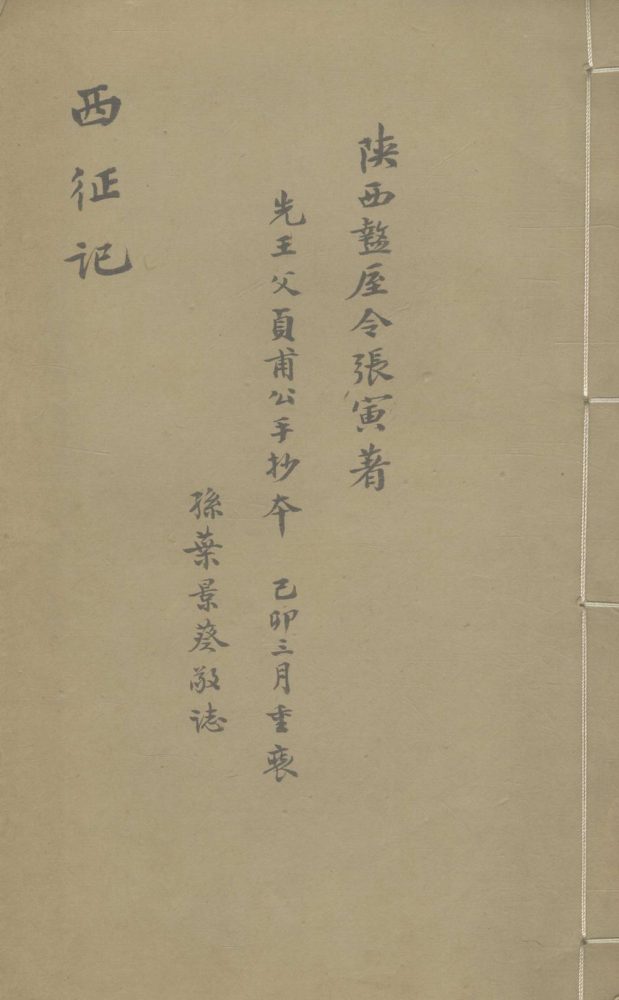 陝西盩厔令張寅著
先王父貢甫公手抄本 己卯三月重裝
孫葉景葵敬誌
西征記